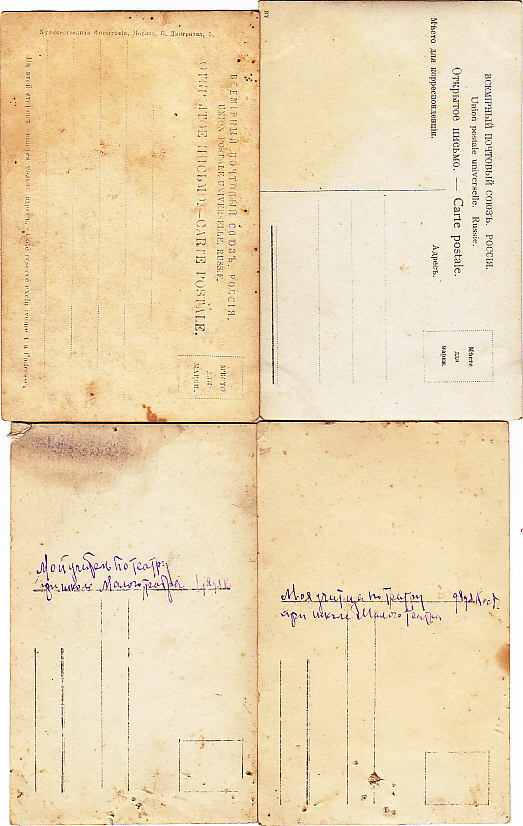 Художественная Фототипія, Москва, Б. Дмитровка,
ВСЕМІРНЫЙ ПОЧТОВЫЙ СОЮЗЪ, РОССІЯ.
UNION POSTALE UNIVERSELLE, RUSSIE.
ОТКРЫТОЕ ПИСЬМО.—CARTE POSTALE.
На этой сторонѣ
МѢСТО
ДЛЯ
МАРКИ.
ВСЕМІРНЫЙ ПОЧТОВЫЙ СОЮЗЪ. РОССІЯ.
Union postale universelle. Russie.
Открытое письмо. — Carte postale.
Мѣсто для корреспонденціи.
Адресъ.
Мѣсто
для
марки.
Мой учитель по театру
при школе Малого театра
Моя учит ца по театру
при школе Малого театра